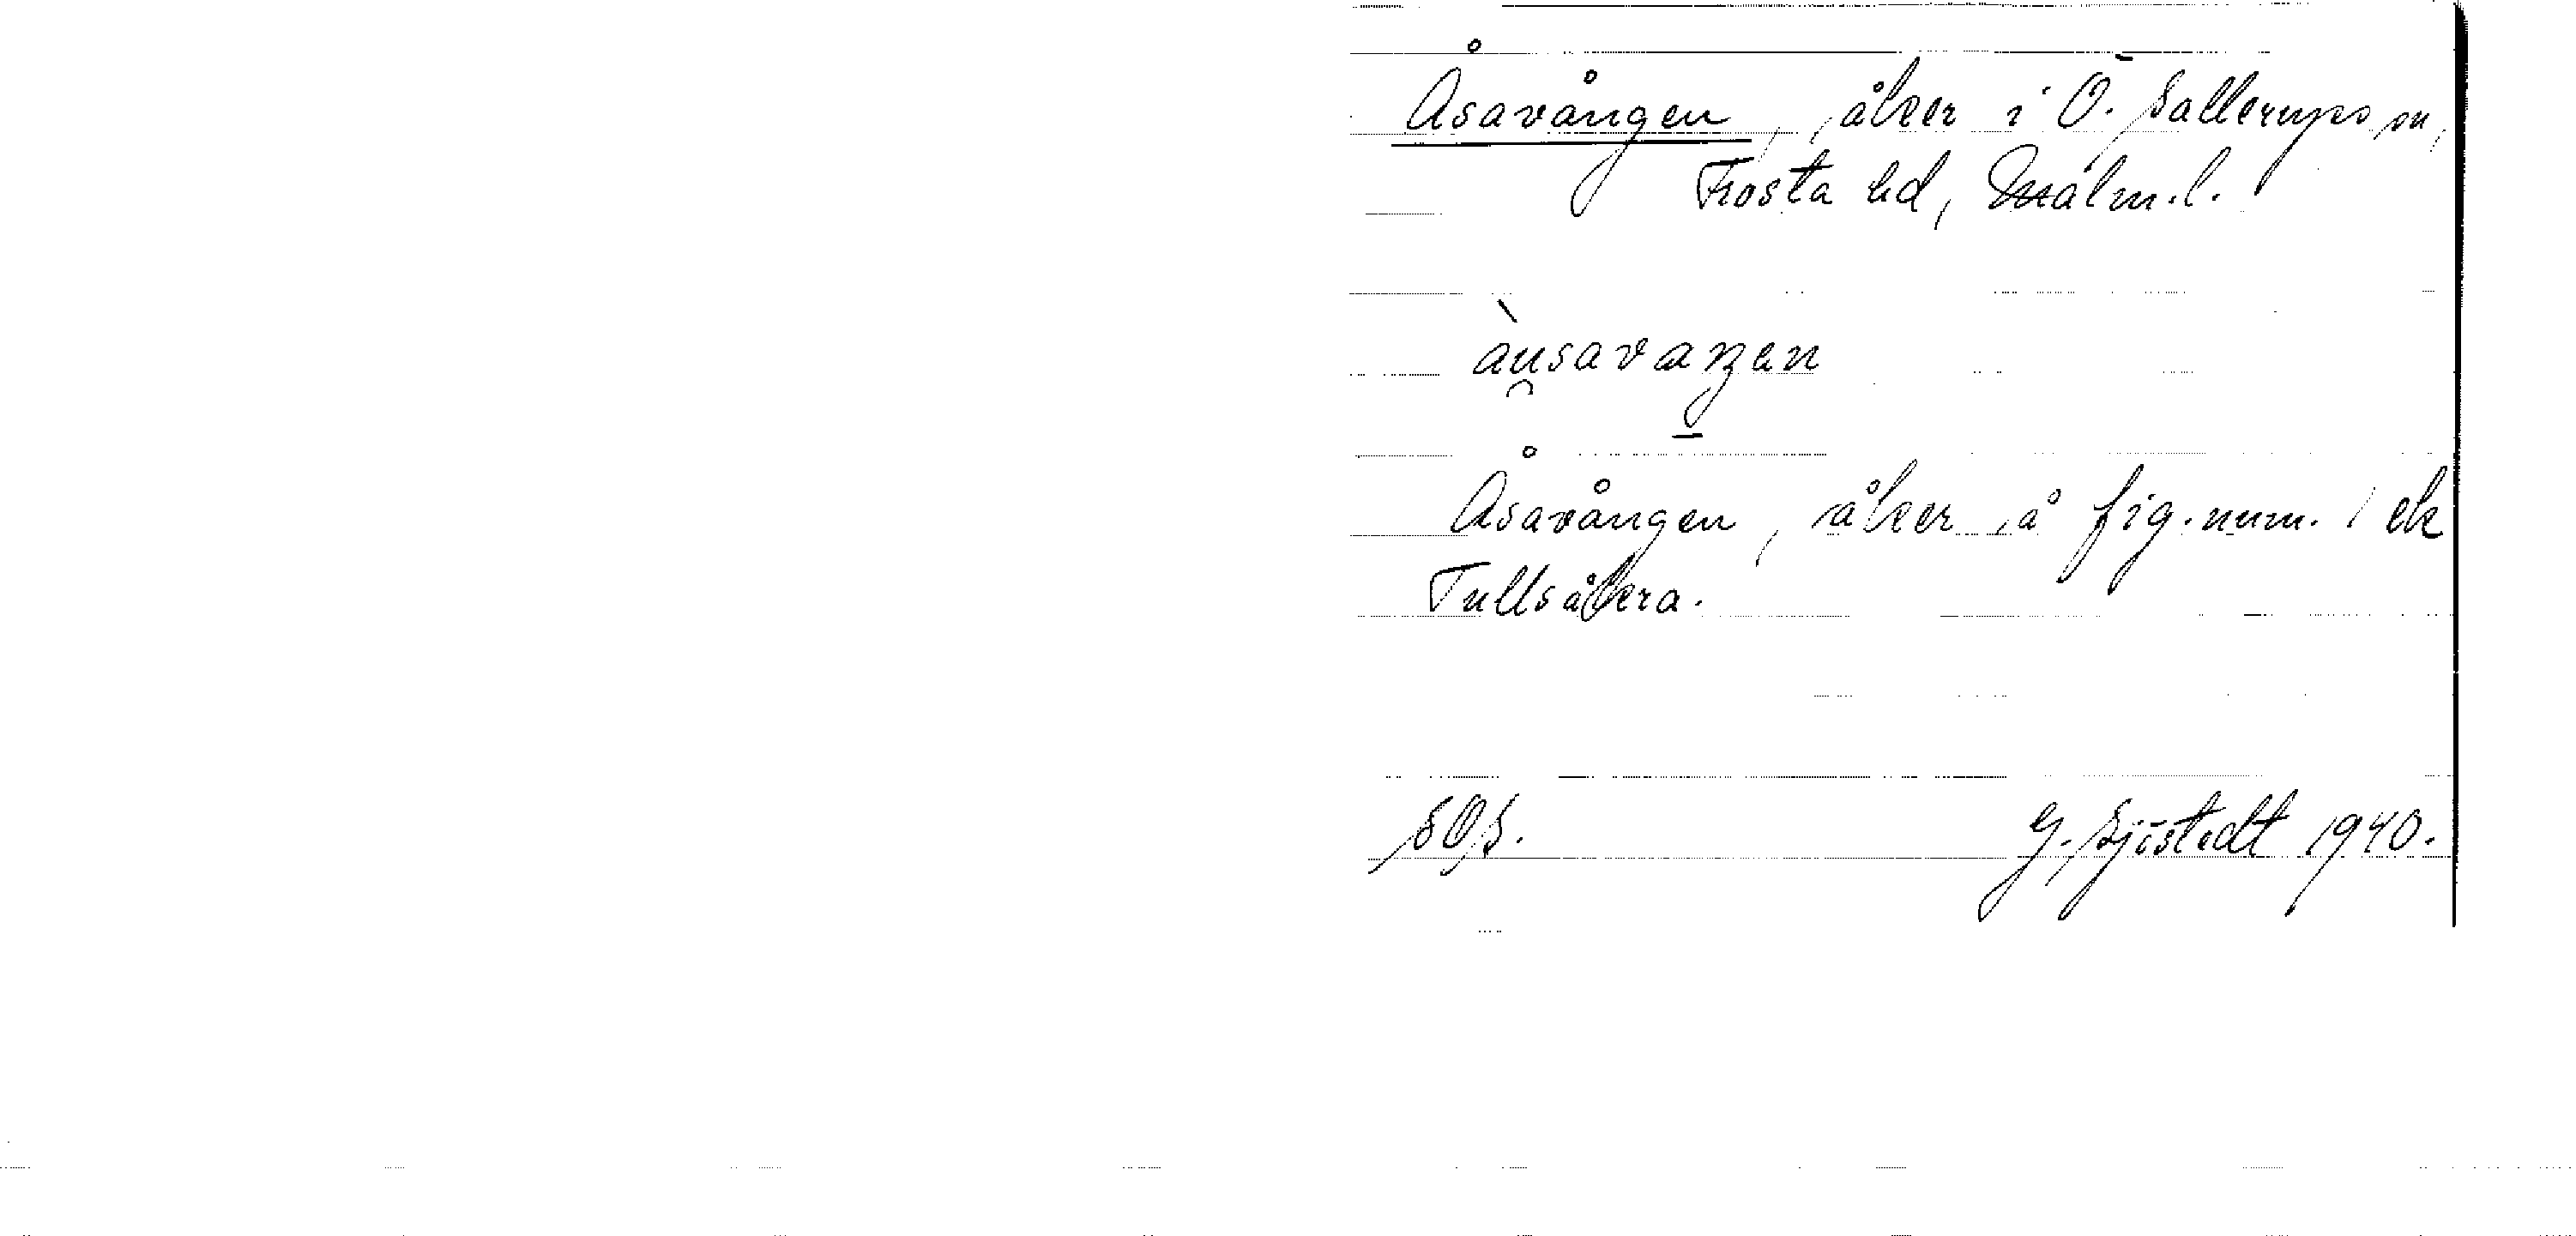 Åsavången, åker i Ö. Sallerups sn,
Frosta hd, Malm.l.
àu̯savaŋen
Åsavången, åker å fig.num. 1 ek
Tullsåkra.
SOS.
G. Sjöstedt 1940.